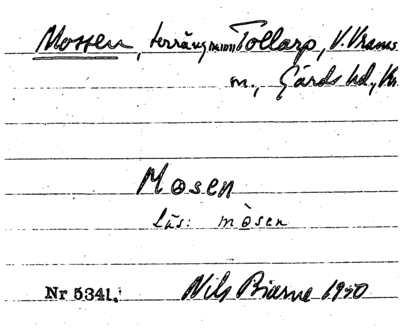 Mossen, terrängnamn Tollarp, V. Vrams
m., Gärds hd, Kr
Mosen
läs: mòsen
Nr 5341. Nils Bjarne 1950